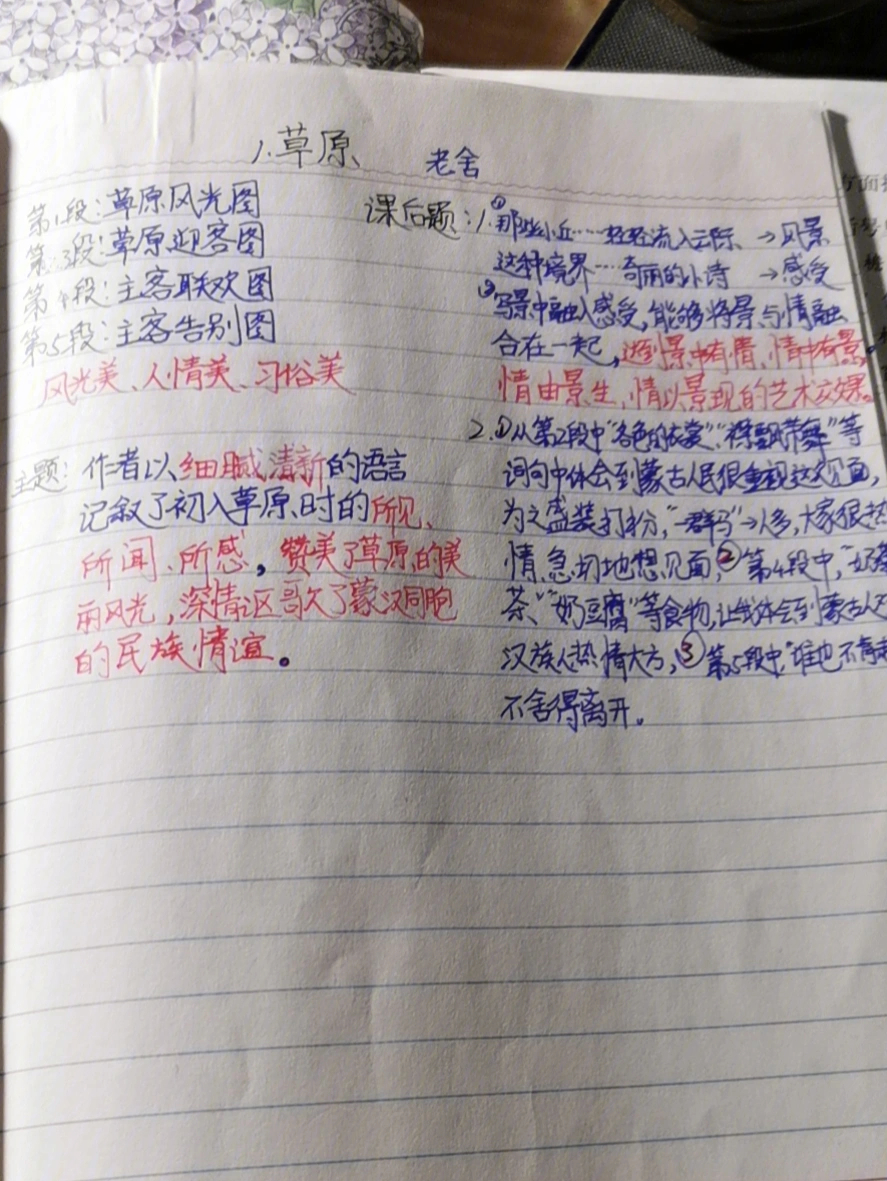 1.草原 老舍
第1段:草原风光图
第2、3段:草原迎客图
第4段:主客联欢图
第5段:主客告别图
风光美、人情美、习俗美
主题:作者以细腻清新的语言
记叙了初入草原时的所见、
所闻、所感,赞美了草原的美
丽风光,深情讴歌了蒙汉同胞
的民族情谊。
课后题:1.①那些小丘……轻轻流入云际 →风景
这种境界……奇丽的小诗 →感受
②写景中融入感受,能够将景与情融
合在一起,达到景中有情,情中有景,
情由景生,情以景现的艺术效果。
2.①从第2段中“各色的衣裳”、“襟飘带舞”等
词句中体会到蒙古人民很重视这次见面,
为之盛装打扮,“一群马”→人多,大家很热
情、急切地想见面,②第4段中,“奶茶
茶”“奶豆腐”等食物,让我体会到蒙古人对
汉族人热情大方,③第5段中,“谁也不肯走
不舍得离开。
方面